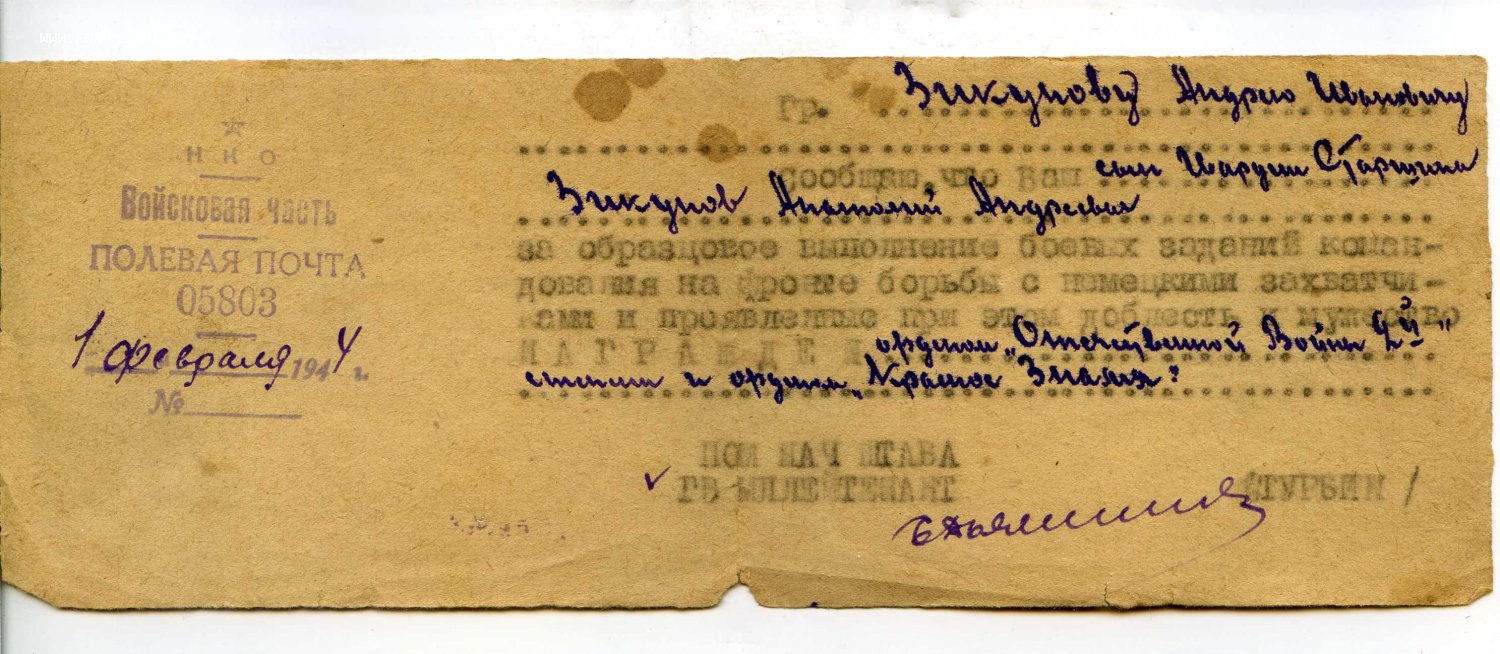 НКО
Войсковая часть
ПОЛЕВАЯ ПОЧТА
05803
1 февраля 1944 г.
№
Гр. Зикунову Андрею Ивановичу
Сообщаю, что Ваш сын Гвардии Старшина
Зикунов Анатолий Андреевич
за образцовое выполнение боевых заданий коман-
дования на фронте борьбы с немецкими захватчи-
ками и проявленные при этом доблесть и мужество
НАГРАЖДЕН орденом „Отечественной Войны 2й"
степени и орденом „Красное Знамя"
ПОМ НАЧ ШТАБА
ГВ МЛ ЛЕЙТЕНАНТ /ТУРБИН/